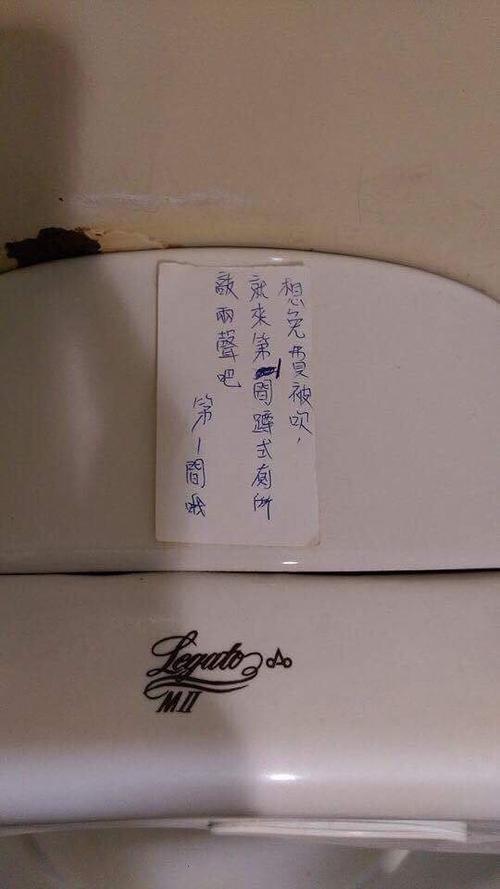 想免費被吹，
就來第1間蹲式廁所
敲兩聲吧
第1間哦
Legato
MII